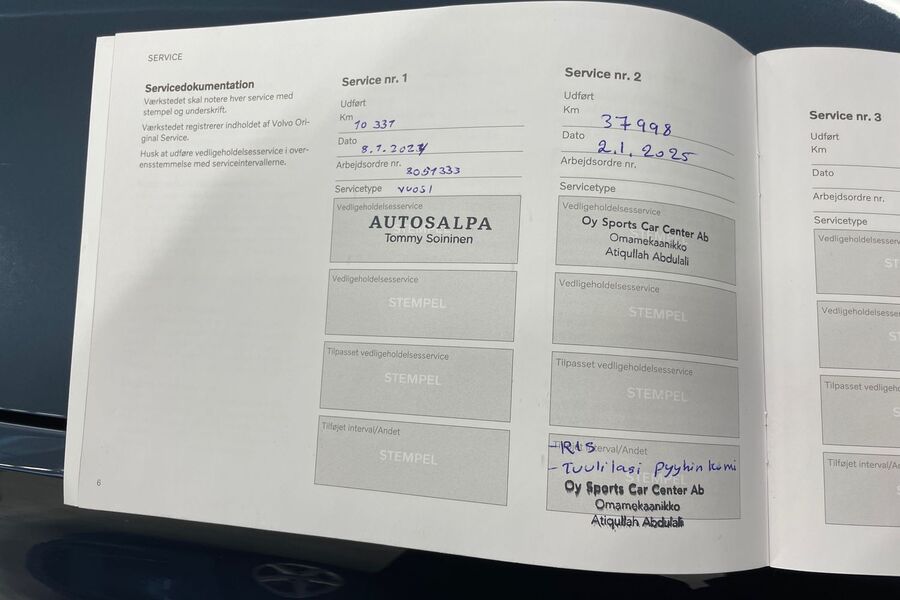 SERVICE
Servicedokumentation
Værkstedet skal notere hver service med
stempel og underskrift.
Værkstedet registrerer indholdet af Volvo Ori-
ginal Service.
Husk at udføre vedligeholdelsesservice i over-
ensstemmelse med serviceintervallerne.
6
Service nr. 1
Udført
Km 10 331
Dato 8.1.2024
Arbejdsordre nr. 8051333
Servicetype vuosi
Vedligeholdelsesservice
AUTOSALPA
Tommy Soininen
Vedligeholdelsesservice
STEMPEL
Tilpasset vedligeholdelsesservice
STEMPEL
Tilføjet interval/Andet
STEMPEL
Service nr. 2
Udført
Km 37998
Dato 2.1.2025
Arbejdsordre nr.
Servicetype
Vedligeholdelsesservice
Oy Sports Car Center Ab
Omamekaanikko
Atiqullah Abdulali
Vedligeholdelsesservice
STEMPEL
Tilpasset vedligeholdelsesservice
STEMPEL
Tilføjet interval/Andet
- RIS
- Tuulilasi pyyhin kumi
Oy Sports Car Center Ab
Omamekaanikko
Atiqullah Abdulali
Service nr. 3
Udført
Km
Dato
Arbejdsordre nr.
Servicetype
Vedligeholdelsesserv
ST
Vedligeholdelsesserv
S
Tilpasset vedligeho
S
Tilføjet interval/A